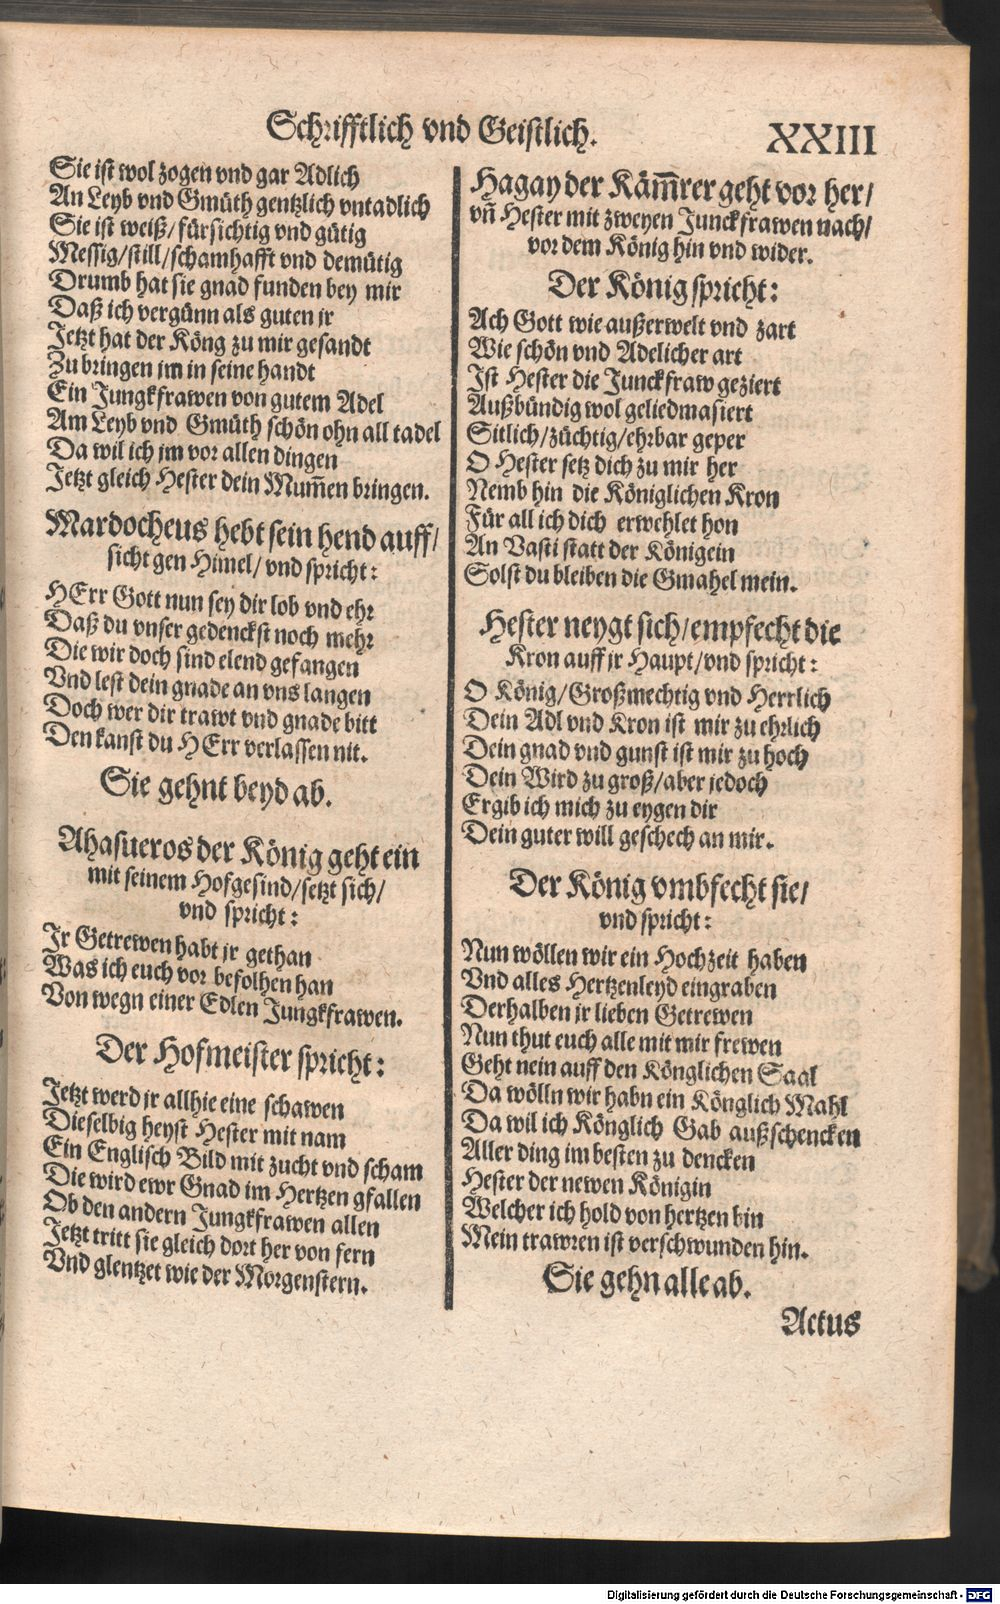 Schrifftlich vnd Geistlich.
XXIII
Sie ist wol zogen vnd gar Adlich
An Leyb vnd Gmüth gentzlich vntadlich
Sie ist weiß/ fürsichtig vnd gütig
Messig/still/schamhafft vnd demütig
Drumb hat sie gnad funden bey mir
Daß ich vergünn als guten jr
Jetzt hat der Köng zu mir gesandt
Zu bringen jm in seine handt
Ein Jungkfrawen von gutem Adel
Am Leyb vnd Gmüth schön ohn all tadel
Da wil ich jm vor allen dingen
Jetzt gleich Hester dein Mum̄en bringen.
Mardocheus hebt sein hend auff/
sicht gen Himel/ vnd spricht:
HErr Gott nun sey dir lob vnd ehr
Daß du vnser gedenckst noch mehr
Die wir doch sind elend gefangen
Vnd lest dein gnade an vns langen
Doch wer dir trawt vnd gnade bitt
Den kanst du HErr verlassen nit.
Sie gehnt beyd ab.
Ahasueros der König geht ein
mit seinem Hofgesind/setzt sich/
vnd spricht:
Jr Getrewen habt jr gethan
Was ich euch vor befolhen han
Von wegn einer Edlen Jungkfrawen.
Der Hofmeister spricht:
Jetzt werd jr allhie eine schawen
Dieselbig heyst Hester mit nam
Ein Englisch Bild mit zucht vnd scham
Die wird ewr Gnad im Hertzen gfallen
Ob den andern Jungkfrawen allen
Jetzt tritt sie gleich dort her von fern
Vnd glentzet wie der Morgenstern.
Hagay der Käm̄rer geht vor her/
vn̄ Hester mit zweyen Junckfrawen nach/
vor dem König hin vnd wider.
Der König spricht:
Ach Gott wie außerwelt vnd zart
Wie schön vnd Adelicher art
Ist Hester die Junckfraw geziert
Außbündig wol geliedmasiert
Sitlich/züchtig/ehrbar geper
O Hester setz dich zu mir her
Nemb hin die Königlichen Kron
Für all ich dich erwehlet hon
An Vasti statt der Königein
Solst du bleiben die Gmahel mein.
Hester neygt sich/empfecht die
Kron auff jr Haupt/vnd spricht:
O König/Großmechtig vnd Herrlich
Dein Adl vnd Kron ist mir zu ehrlich
Dein gnad vnd gunst ist mir zu hoch
Dein Wird zu groß/aber jedoch
Ergib ich mich zu eygen dir
Dein guter will geschech an mir.
Der König vmbfecht sie/
vnd spricht:
Nun wöllen wir ein Hochzeit haben
Vnd alles Hertzenleyd eingraben
Derhalben jr lieben Getrewen
Nun thut euch alle mit mir frewen
Geht nein auff den Könglichen Saal
Da wölln wir habn ein Könglich Mahl
Da wil ich Könglich Gab außschencken
Aller ding im besten zu dencken
Hester der newen Königin
Welcher ich hold von hertzen bin
Mein trawren ist verschwunden hin.
Sie gehn alle ab.
Actus
Digitalisierung gefördert durch die Deutsche Forschungsgemeinschaft - DFG